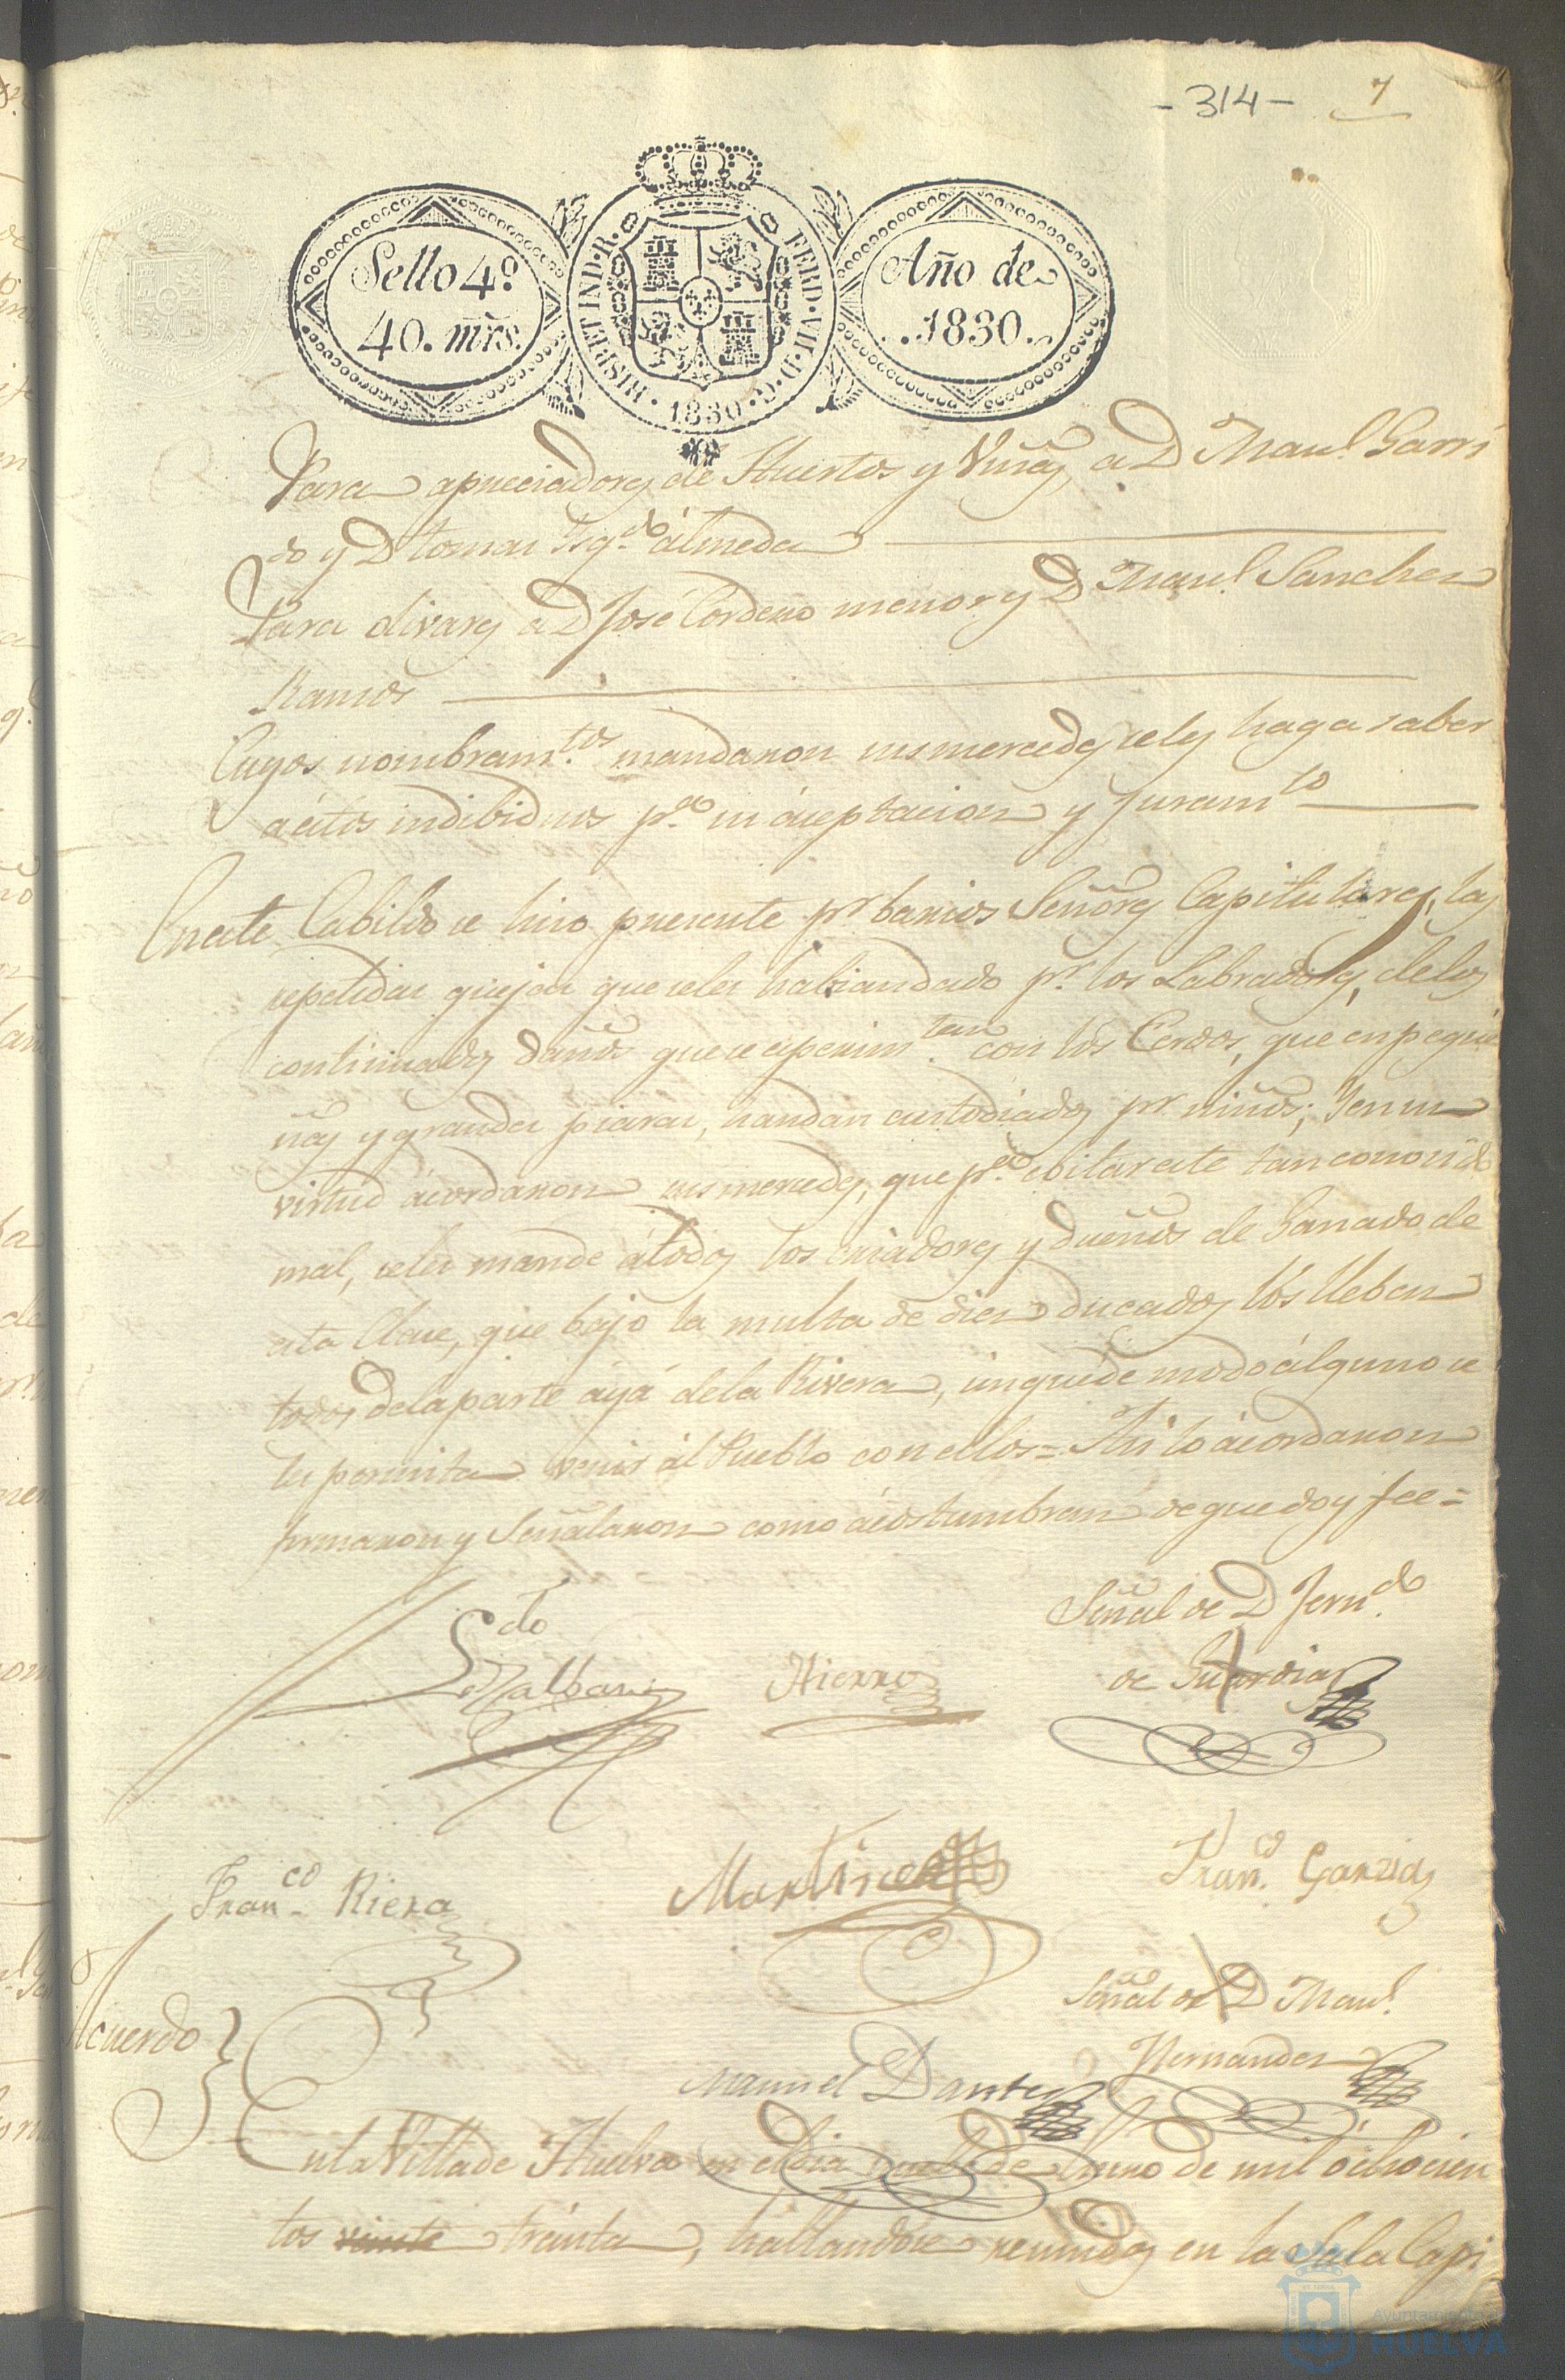 - 314 - 7
Sello 4º
40. mrs.
HISP. ET IND. R. FERD. VII. D. G. 1830
Año de
1830.
Para apreciadores de Huertos y Viñas, a D Manl. Garri
do y D tomas almeda
Para olivares a D José Cordero menor y D Manl. Sanchez
Ramos
Cuyos nombramtos. mandaron sus mercedes seles haga saber
aéstos indibiduos pa. su áceptacion y Juramto
Eneste Cabildo se hizo presente pr barios Señores Capitulares, las
repetidas quejas que seles habian dado pr. los Labradores, delos
continuados daños que se esperimtan. con los Cerdos, que en peque
ñas y grandes piaras, handan custodiados pr niños; Y en su
virtud ácordaron sus mercedes, que pa. ebitar este tan conosido
mal, seles mande átodos los criadores y dueños de Ganado de
esta Clase, que bajo la multa de diez ducados los lleben
todos dela parte ayá dela Rivera, sin que de modo álguno se
les permita venir ál Pueblo con ellos = Asi lo ácordaron
firmaron y Señalaron como ácostumbran de que doy fee =
Señal de D Ferndo.
Ldo
Hierro
de Guardia
Franco. Riera
Martinez
Franco. Garzia
Señal de D Manl.
Hernandez
Acuerdo
Manuel Dante
En la Villa de Huelva en el dia de de mil óchocien
tos veinte treinta, hallandose reunidos en la Sala Capi
Ayuntamiento de
HUELVA